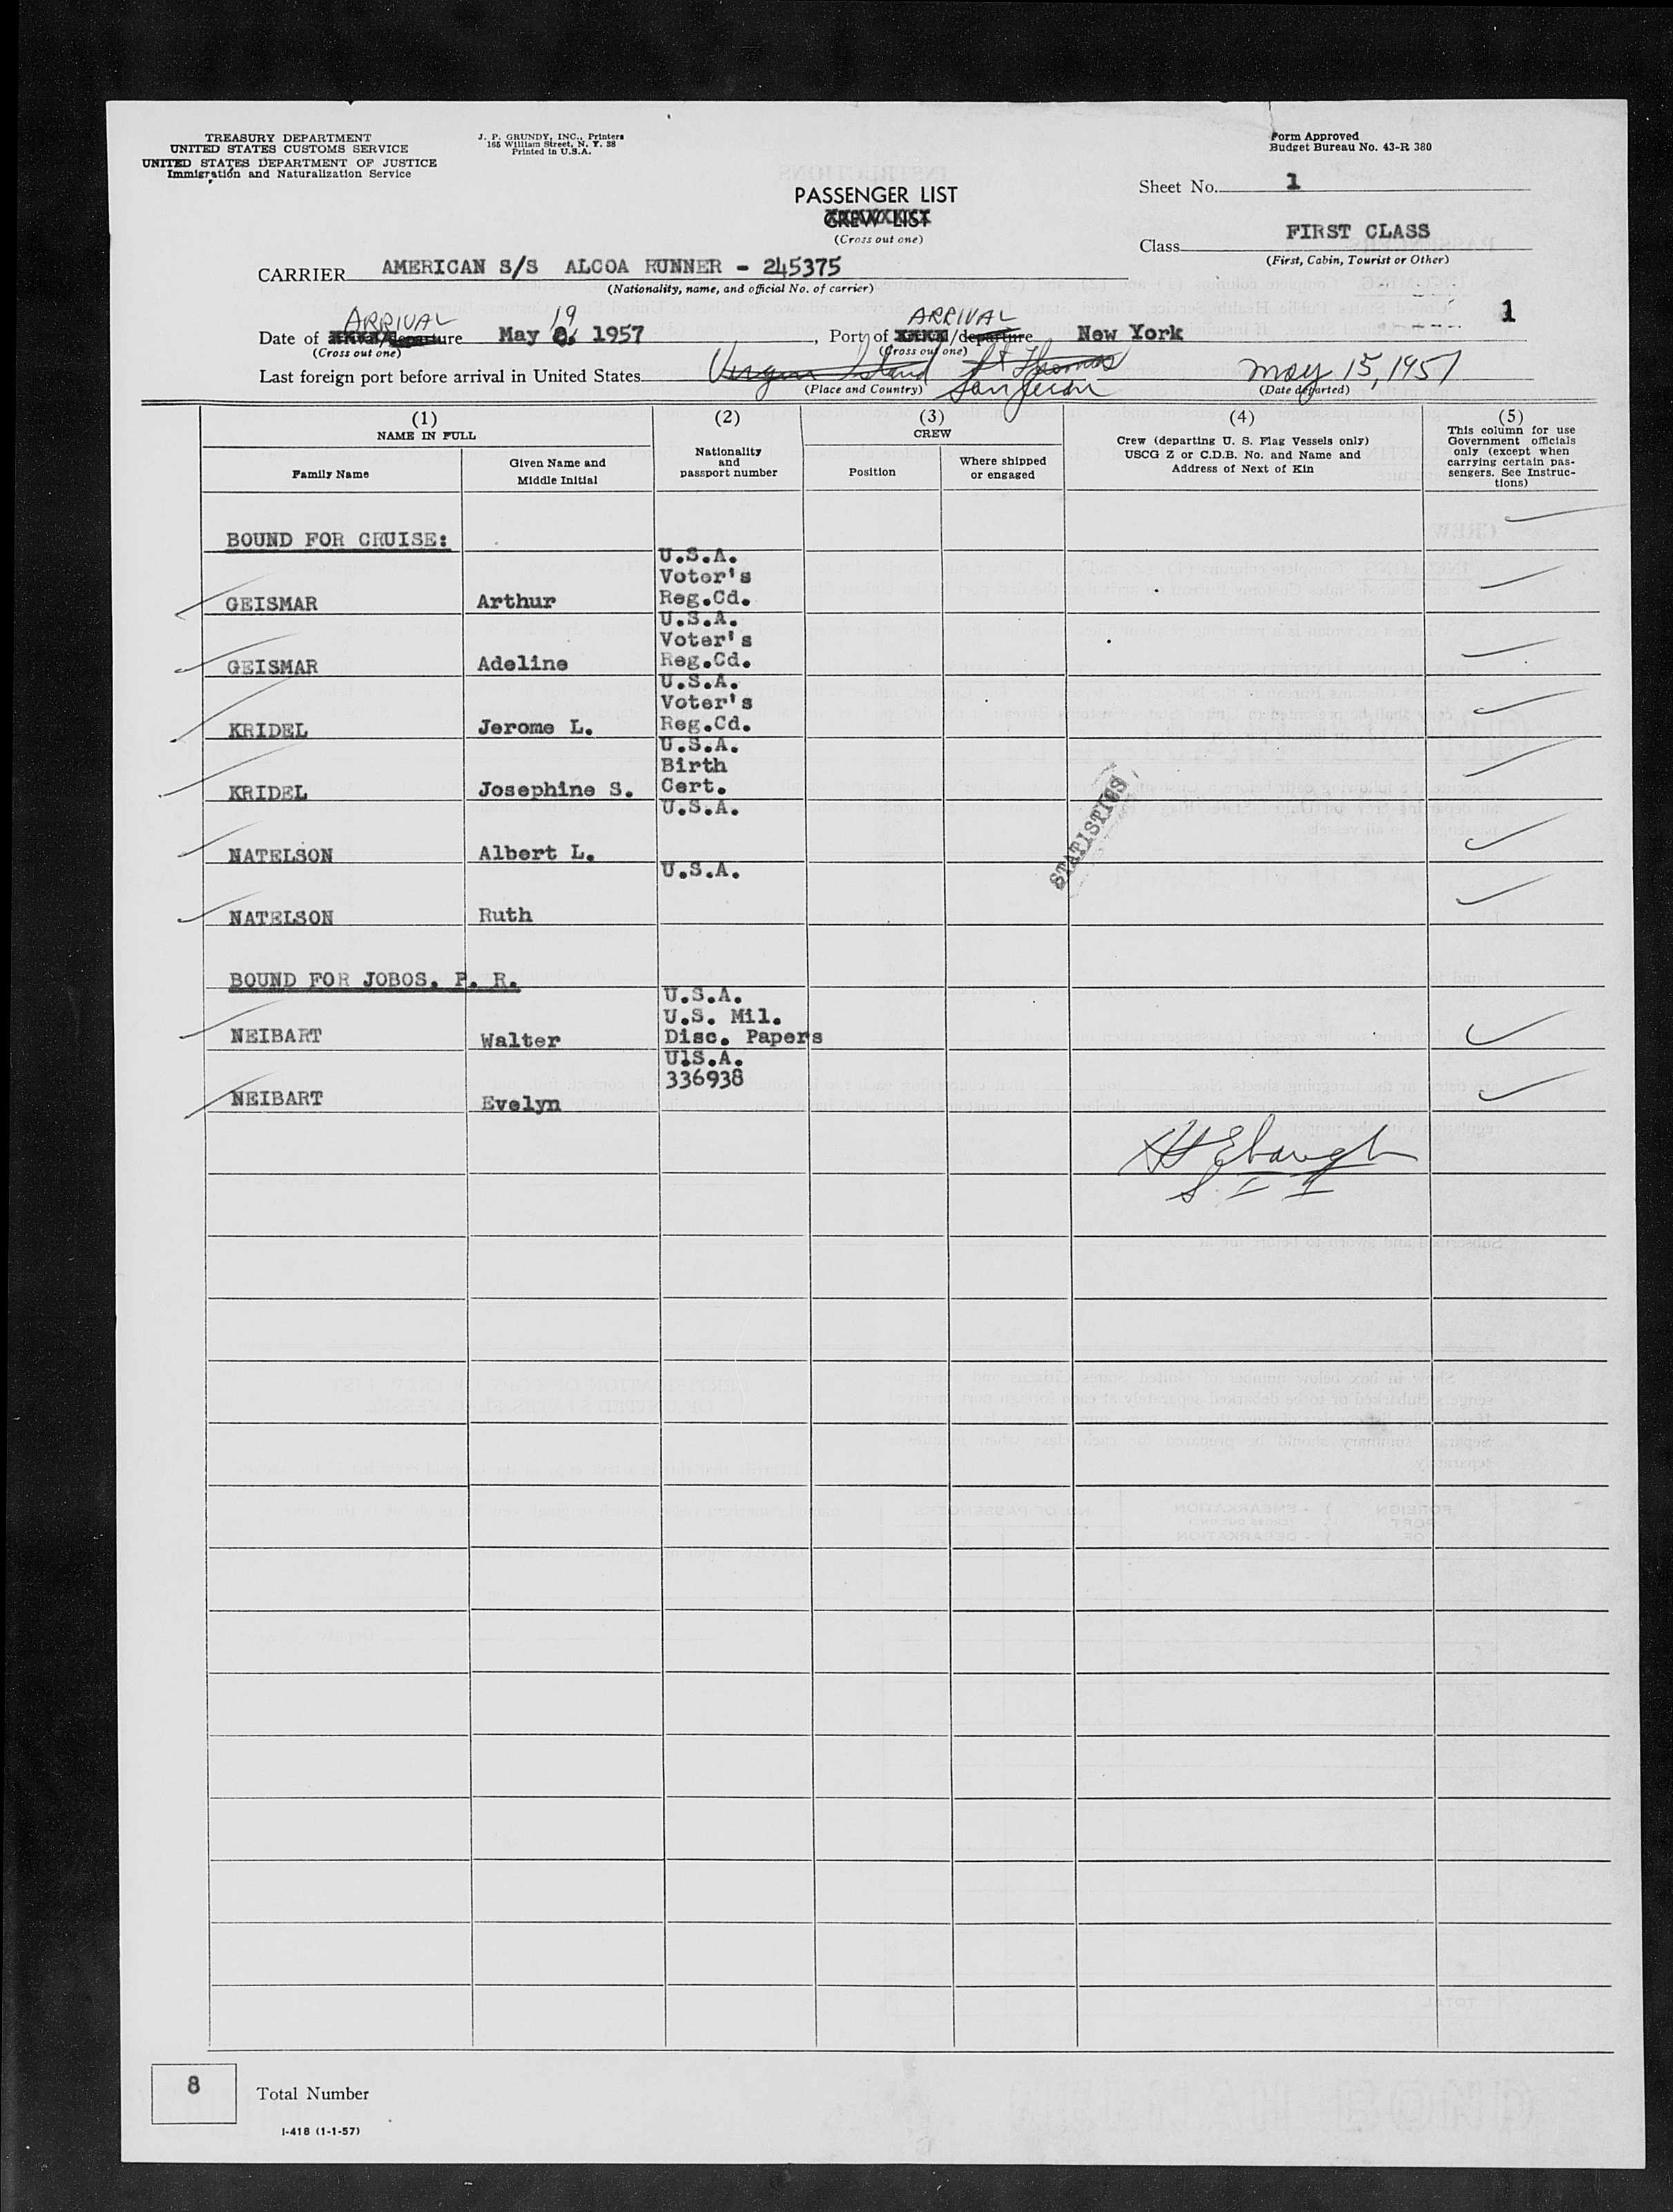 TREASURY DEPARTMENT
UNITED STATES CUSTOMS SERVICE
UNITED STATES DEPARTMENT OF JUSTICE
Immigration and Naturalization Service
J. P. GRUNDY, INC., Printers
165 William Street, N. Y. 38
Printed in U.S.A.
Form Approved
Budget Bureau No. 43-R 380
PASSENGER LIST
CREW LIST
(Cross out one)
Sheet No. 1
Class FIRST CLASS
(First, Cabin, Tourist or Other)
CARRIER AMERICAN S/S ALCOA RUNNER - 245375
(Nationality, name, and official No. of carrier)
ARRIVAL 19 ARRIVAL 1
Date of arrival/departure May 8, 1957, Port of /departure New York
(Cross out one) (Cross out one)
Last foreign port before arrival in United States Virgin Island St Thomas May 15, 1957
(Place and Country) San Juan (Date departed)
(1) (2) (3) (4) (5)
NAME IN FULL
Family Name
Given Name and
Middle Initial
Nationality
and
passport number
CREW
Position
Where shipped
or engaged
Crew (departing U. S. Flag Vessels only)
USCG Z or C.D.B. No. and Name and
Address of Next of Kin
This column for use
Government officials
only (except when
carrying certain pas-
sengers. See Instruc-
tions)
BOUND FOR CRUISE:
U.S.A.
Voter's
GEISMAR Arthur Reg.Cd.
U.S.A.
Voter's
GEISMAR Adeline Reg.Cd.
U.S.A.
Voter's
KRIDEL Jerome L. Reg.Cd.
U.S.A.
Birth
KRIDEL Josephine S. Cert.
U.S.A.
STATISTICS
NATELSON Albert L.
U.S.A.
NATELSON Ruth
BOUND FOR JOBOS, P. R.
U.S.A.
U.S. Mil.
NEIBART Walter Disc. Papers
UlS.A.
336938
NEIBART Evelyn
S. I I
8 Total Number
I-418 (1-1-57)